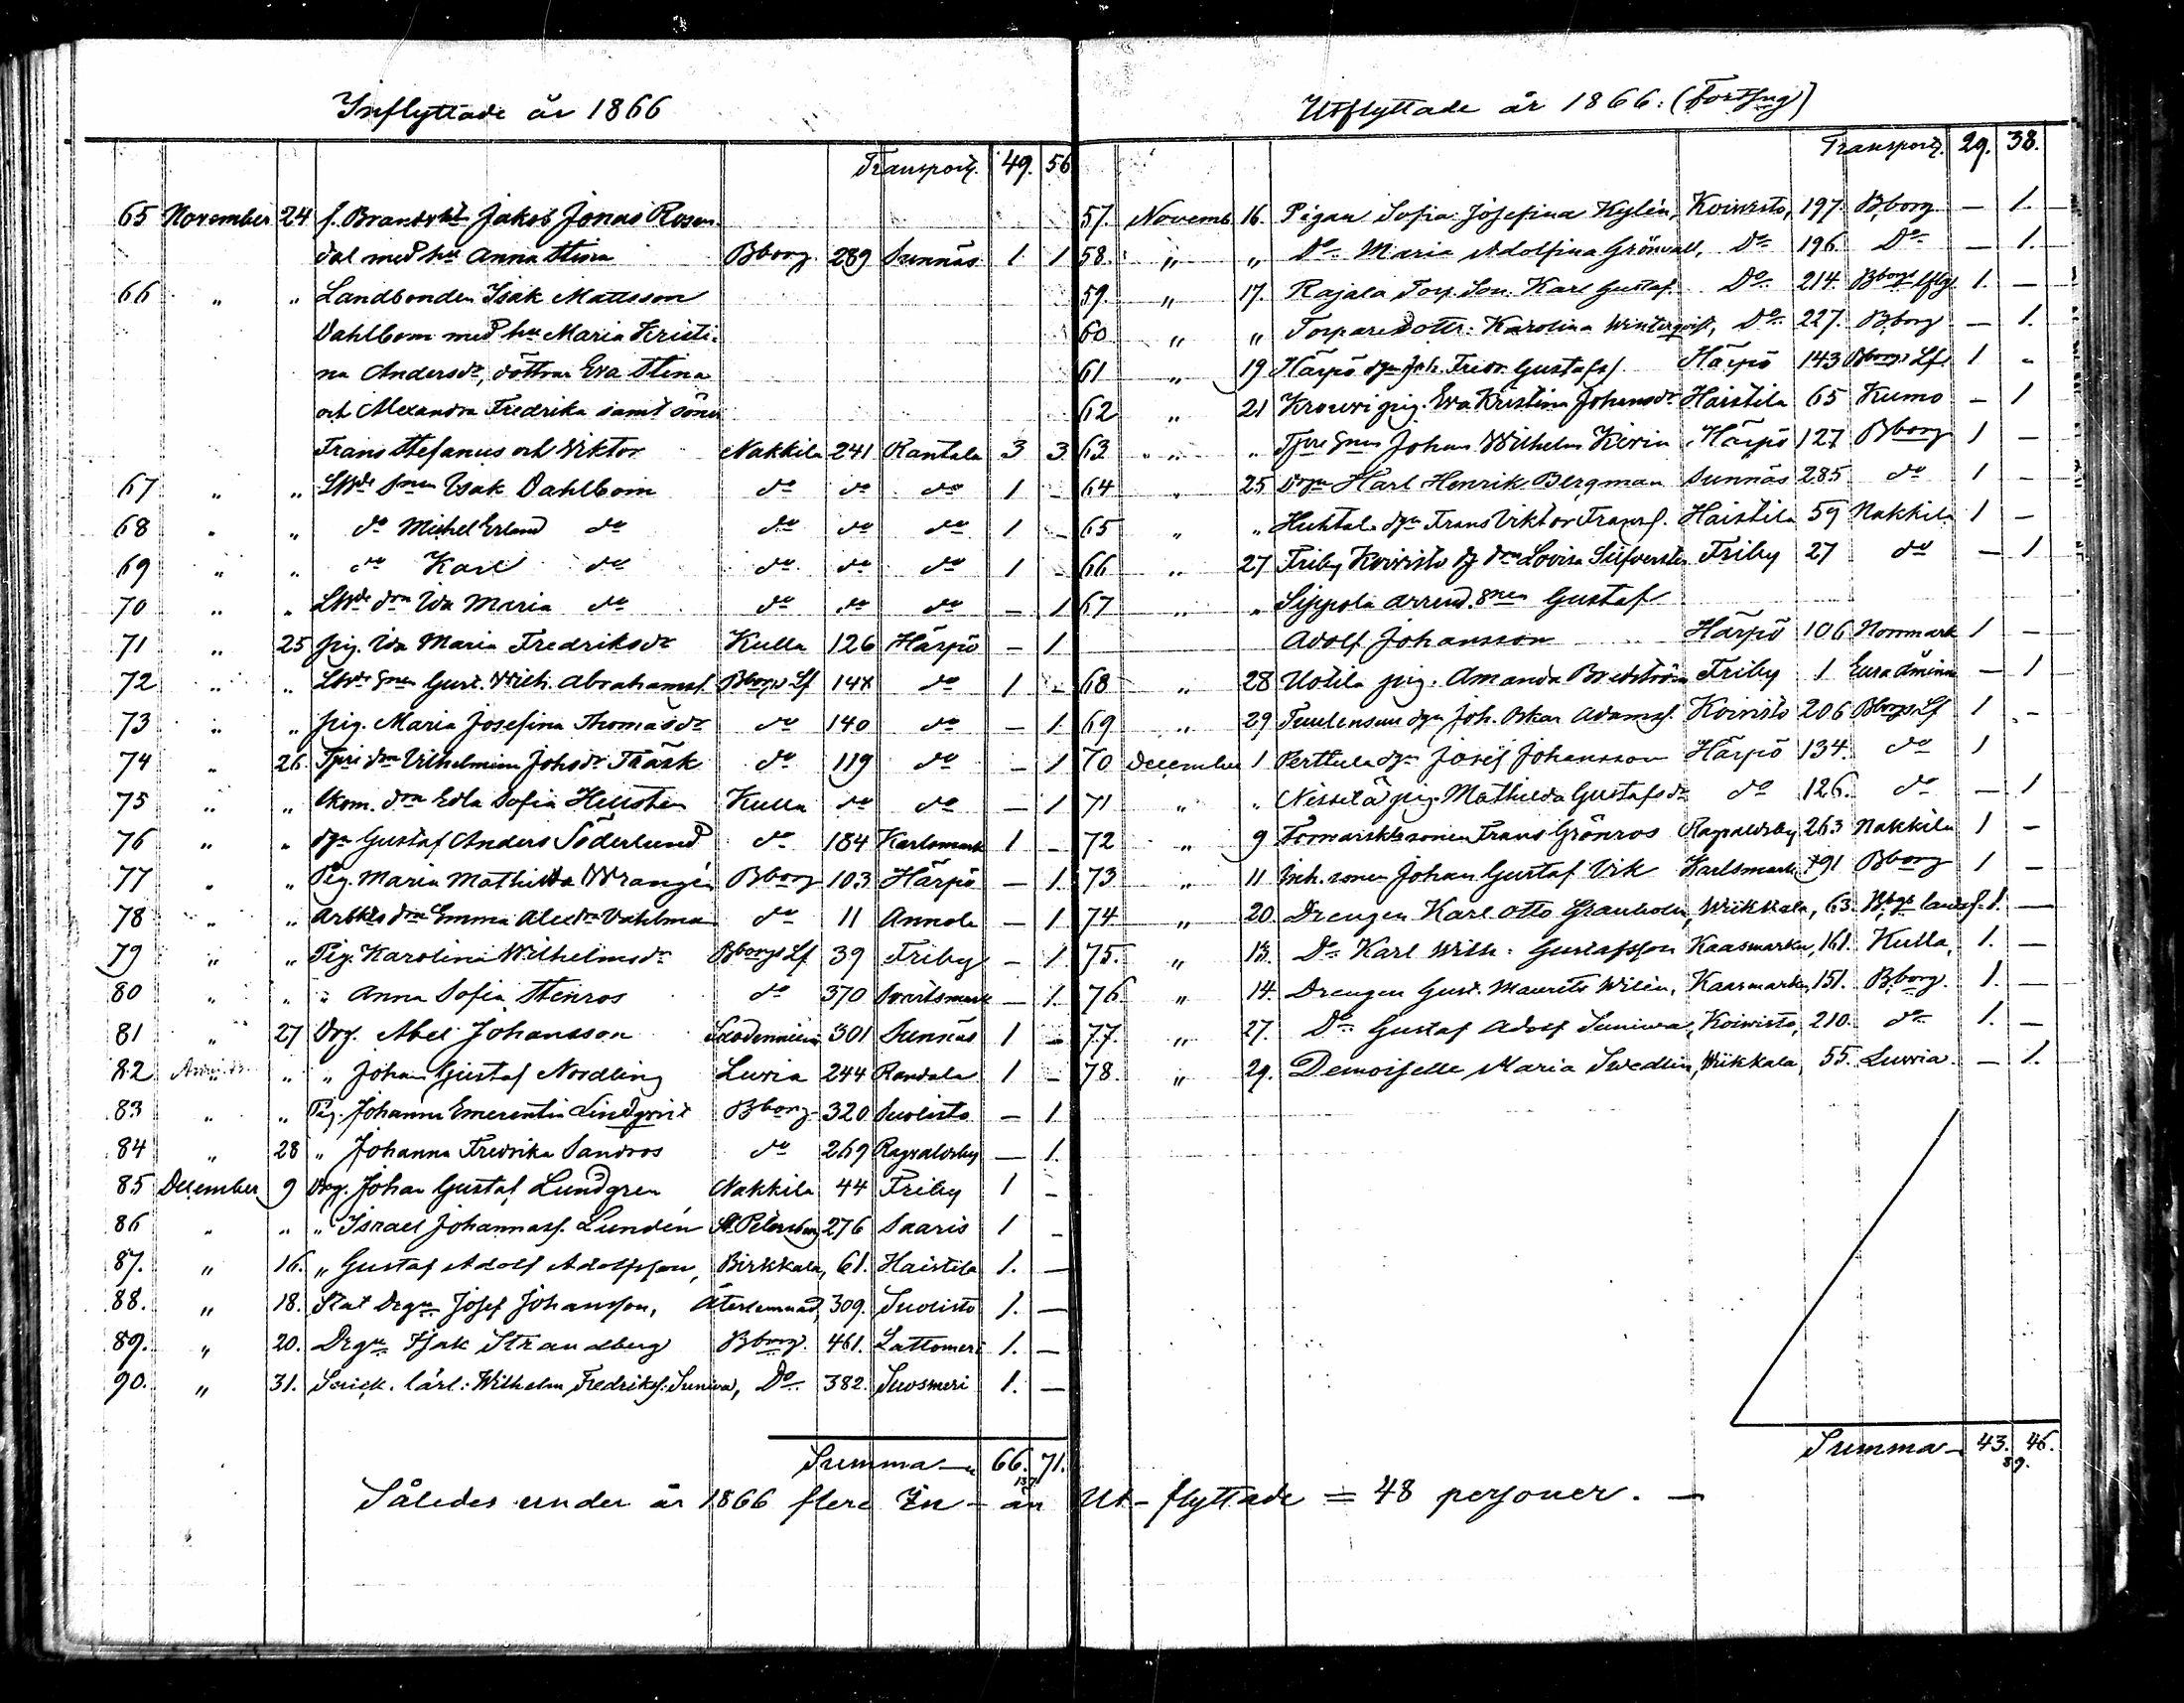 Inflyttade år 1866
Transport. 49. 56
65 November 24 f. Brandvkt Jakob Jonas Rosen-
dal med hu Anna Stina Bborg. 289 Sunnäs 1 1
66 " " Landbonden Isak Mattsson
Dahlbom med hu Maria Kristi-
na Andersdr, döttrar Eva Stina
och Alexandra Fredrika samt söner
Frans Stefanus och Viktor Nakkila 241 Rantala 3 3
67 " " Lbde Snen Isak Dahlbom do do do 1 -
68 " " do Michel Erland do do do do 1 -
69 " " do Karl do do do do 1 -
70 " " Lbde drn Ida Maria do do do do - 1
71 " 25 pig. Ida Maria Fredriksdr Kulla 126 Härpö - 1
72 " " Lbde Snen Gust. Wilh. Abrahamss. Bborgs Lf 144 do 1 -
73 " " pig. Maria Josefina Thomasdr do 140 do - 1
74 " 26 Tpre drn Vilhelmina Johsdr Träsk do 119 do - 1
75 " " drn Edla Sofia Hellsten Kulla do do - 1
76 " " dgn Gustaf Anders Söderlund do 184 Karlsmark 1 -
77 " " Pig. Maria Mathilda Wrangén Bborg 103 Härpö - 1
78 " " Arbkls drn Emma Alexdra Dahlman do 11 Annola - 1
79 " " Pig. Karolina Wilhelmsdr Bborgs Lf 39 Friby - 1
80 " " " Anna Sofia Stenros do 370 Svartsmark - 1
81 " 27 Drg. Abel Johansson 301 Sunnäs 1 -
82 " " " Johan Gustaf Nordling Luvia 244 Randala 1 -
83 " " Pig. Johanna Emerentia Lindqvist Bborg 320 Suolisto - 1
84 " 28 " Johanna Fredrika Sandros do 269 Ragvaldsby - 1
85 December 9 Drg. Johan Gustaf Lundgren Nakkila 44 Friby 1 -
86 " " " Israel Johannass. Lundén St. Petersburg 276 Saaris 1 -
87. " 16. " Gustaf Adolf Adolfsson, Birkkala, 61. Haistila 1. -
88. " 18. Stat Drgn Josef Johansson, Återlemnad, 309. Suolisto 1. -
89. " 20. Drgn Isak Strandberg Bborg. 461. Lattomeri 1. -
90. " 31. Snick. lärl: Wilhelm Fredrikss: Suniva, Do 382. Suosmeri 1. -
Summa 66. 71.
137
Således under år 1866 flere In- än Ut-flyttade = 48 personer. -
Utflyttade år 1866: (Fortsng)
Transport. 29. 38.
57. Novemb. 16. Pigan Sofia Josefina Kylén, Koivisto, 197. Bborg - 1.
58. " " Do Maria Adolfina Grönvall, Do 196. Do - 1.
59. " 17. Rajala Torp. Son. Karl Gustaf. Do 214. Bborgs lfg. 1. -
60 " " Torparedottr: Karolina Winterqvist, Do 227. Bborg - 1.
61 " 19 Härpö dgn Joh. Fredr. Gustafss. Härpö 143 Bborgs Lf. 1 -
62 " 21 Krouvi pig. Eva Kristina Johansdr Haistila 65 Kumo - 1
63 " " Tpre Snen Johan Wilhelm Härpö 127 Bborg 1 -
64 " 25 Drgn Karl Henrik Bergman Sunnäs 285 do 1 -
65 " " Huhtala dgn Frans Viktor Franss. Haistila 59 Nakkila 1 -
66 " 27 Friby Koivisto drn Lovisa Silfversten Friby 27 do - 1
67 " " Sippola arrend. Snen Gustaf
Adolf Johansson Härpö 106 Norrmark 1 -
68 " 28 Uotila pig. Amanda Bredström Friby 1 Eura åminne - 1
69 " 29 Tuulensuu dgn Joh. Oskar Adamss. Koivisto 206 Bborgs Lf 1 -
70 December 1 Perttula dgn Josef Johansson Härpö 134. do 1
71 " " Nissilä pig. Mathilda Gustafsdr do 126. do - 1
72 " 9 sonen Frans Grönros Ragvaldsby 263 Nakkila 1 -
73 " 11 Inh. sonen Johan Gustaf Vik Karlsmark 191 Bborg 1 -
74 " 20. Drengen Karl Otto Granholm, Wiikkala, 63. Bbgs landsf. 1. -
75. " 13. Do Karl Wilh: Gustafsson Kaasmarku, 161. Kulla, 1. -
76. " 14. Drengen Gust. Maurits Wilén, Kaasmarku, 151. Bborg. 1. -
77. " 27. Do Gustaf Adolf Suniva, Koivisto, 210. do 1. -
78. " 29. Demoiselle Maria Swedlin, Wiikkala, 55. Luvia. - 1.
Summa 43. 46.
89.